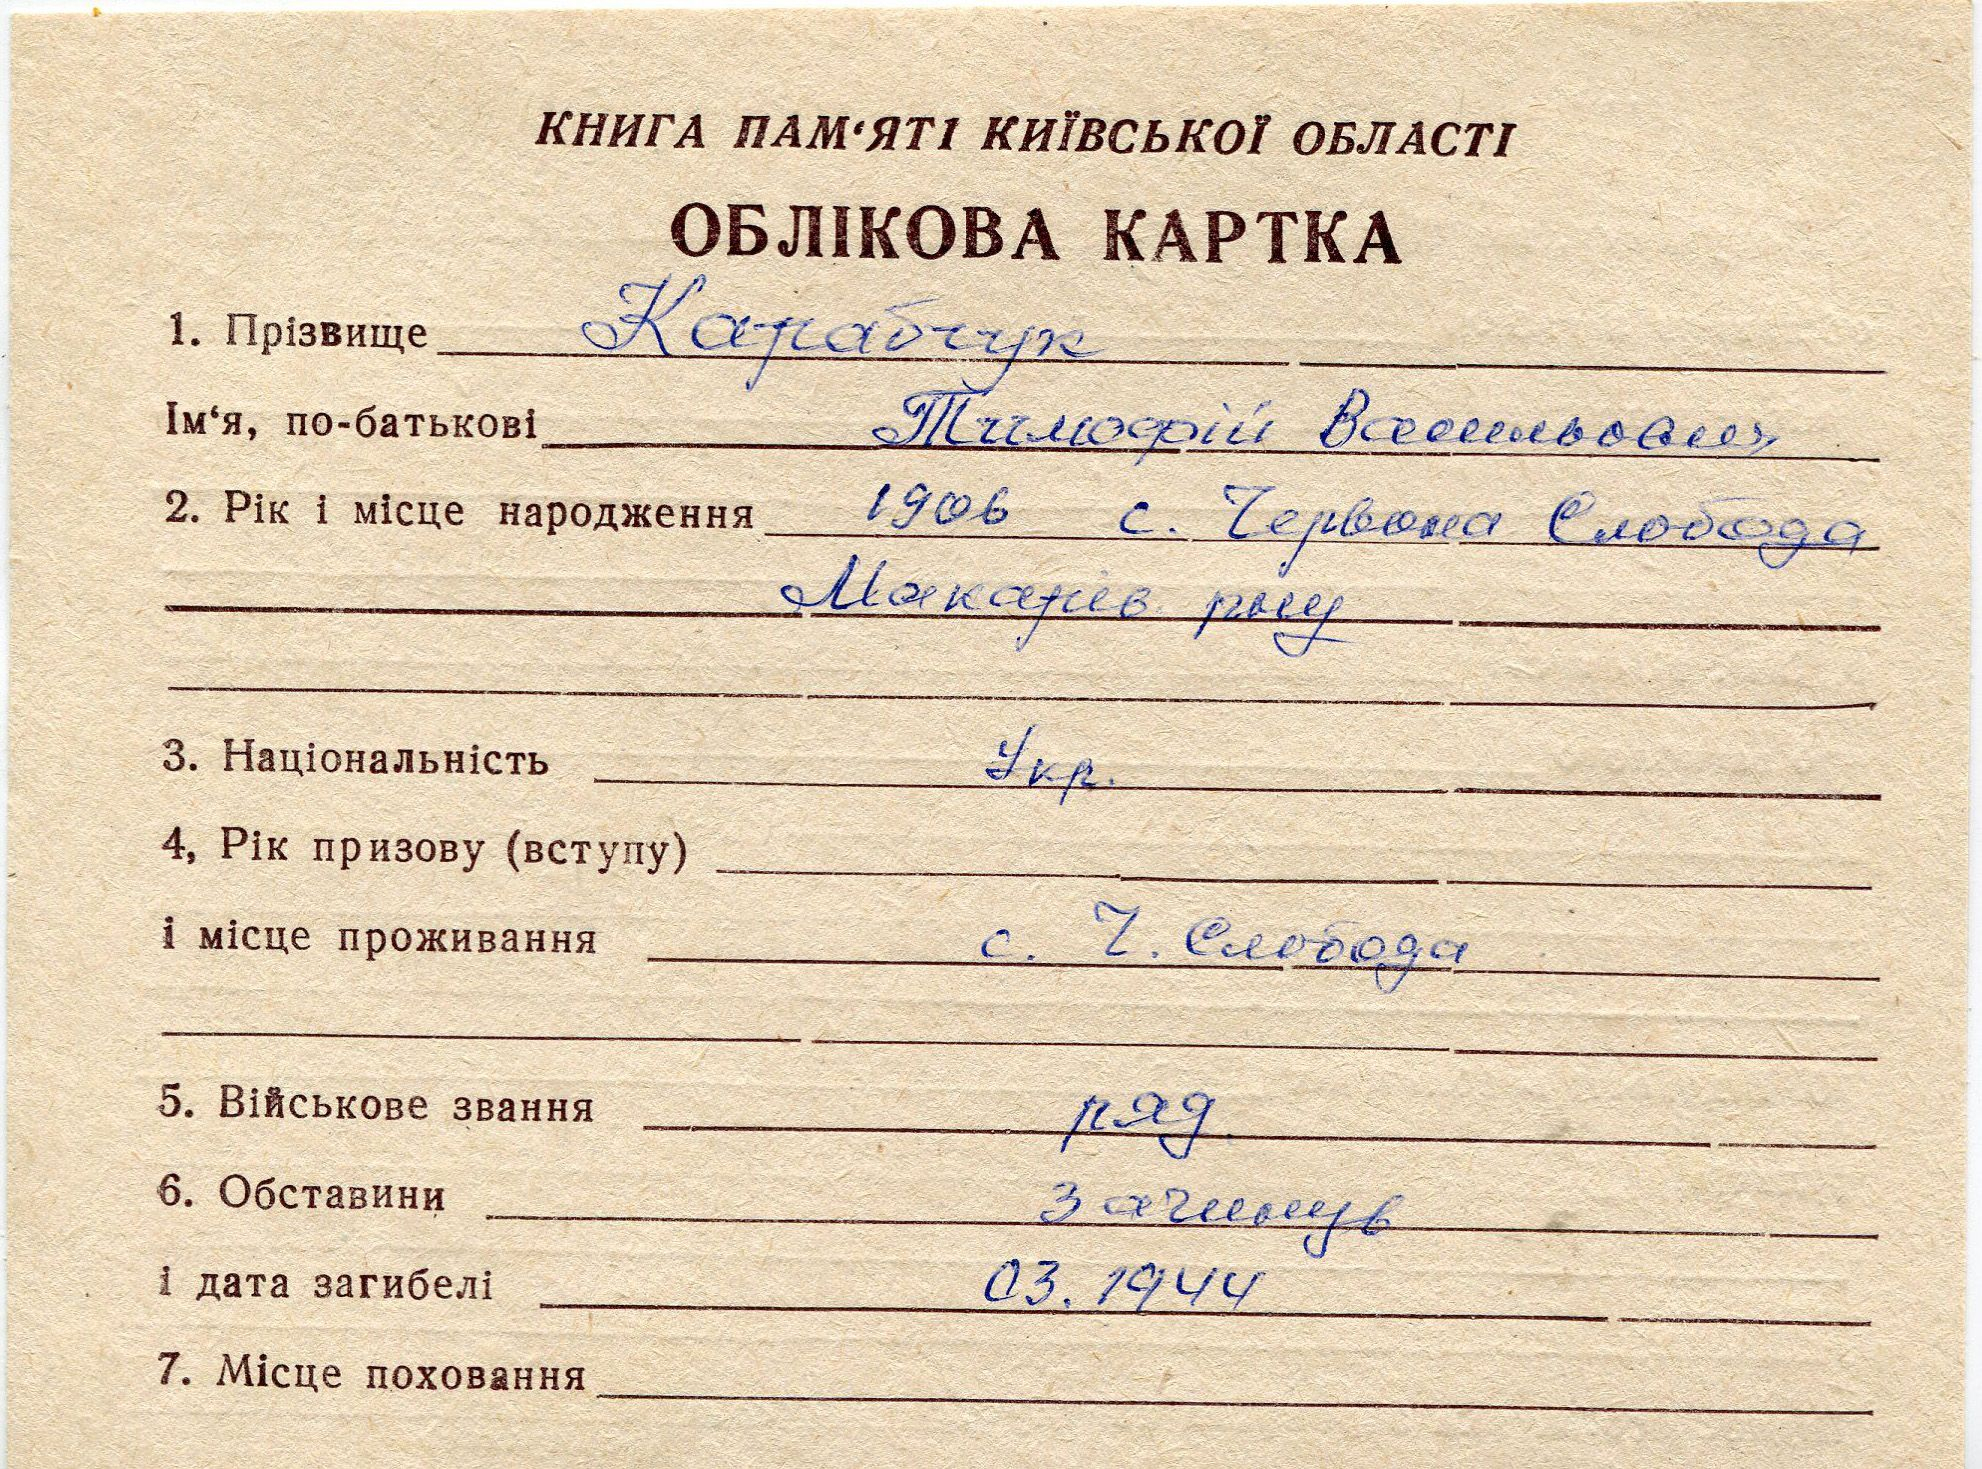 КНИГА ПАМ‘ЯТІ КИЇВСЬКОЇ ОБЛАСТІ
ОБЛІКОВА КАРТКА
1. Прізвище Карабчук
Ім‘я, по-батькові Тимофій Васильович
2. Рік і місце народження 1906 с. Червона Слобода
Макарів. р-ну
3. Національність Укр.
4, Рік призову (вступу)
і місце проживання с. Ч. Слобода
5. Військове звання ряд.
6. Обставини Загинув
і дата загибелі 03.1944
7. Місце поховання